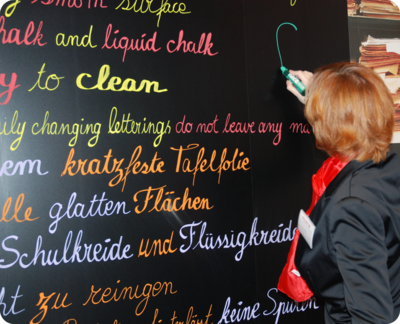 smooth surface
chalk and liquid chalk
to clean
daily changing letterings do not leave any
kratzfeste Tafelfolie
alle glatten Flächen
Schulkreide und Flüssigkreide
zu reinigen
keine Spuren